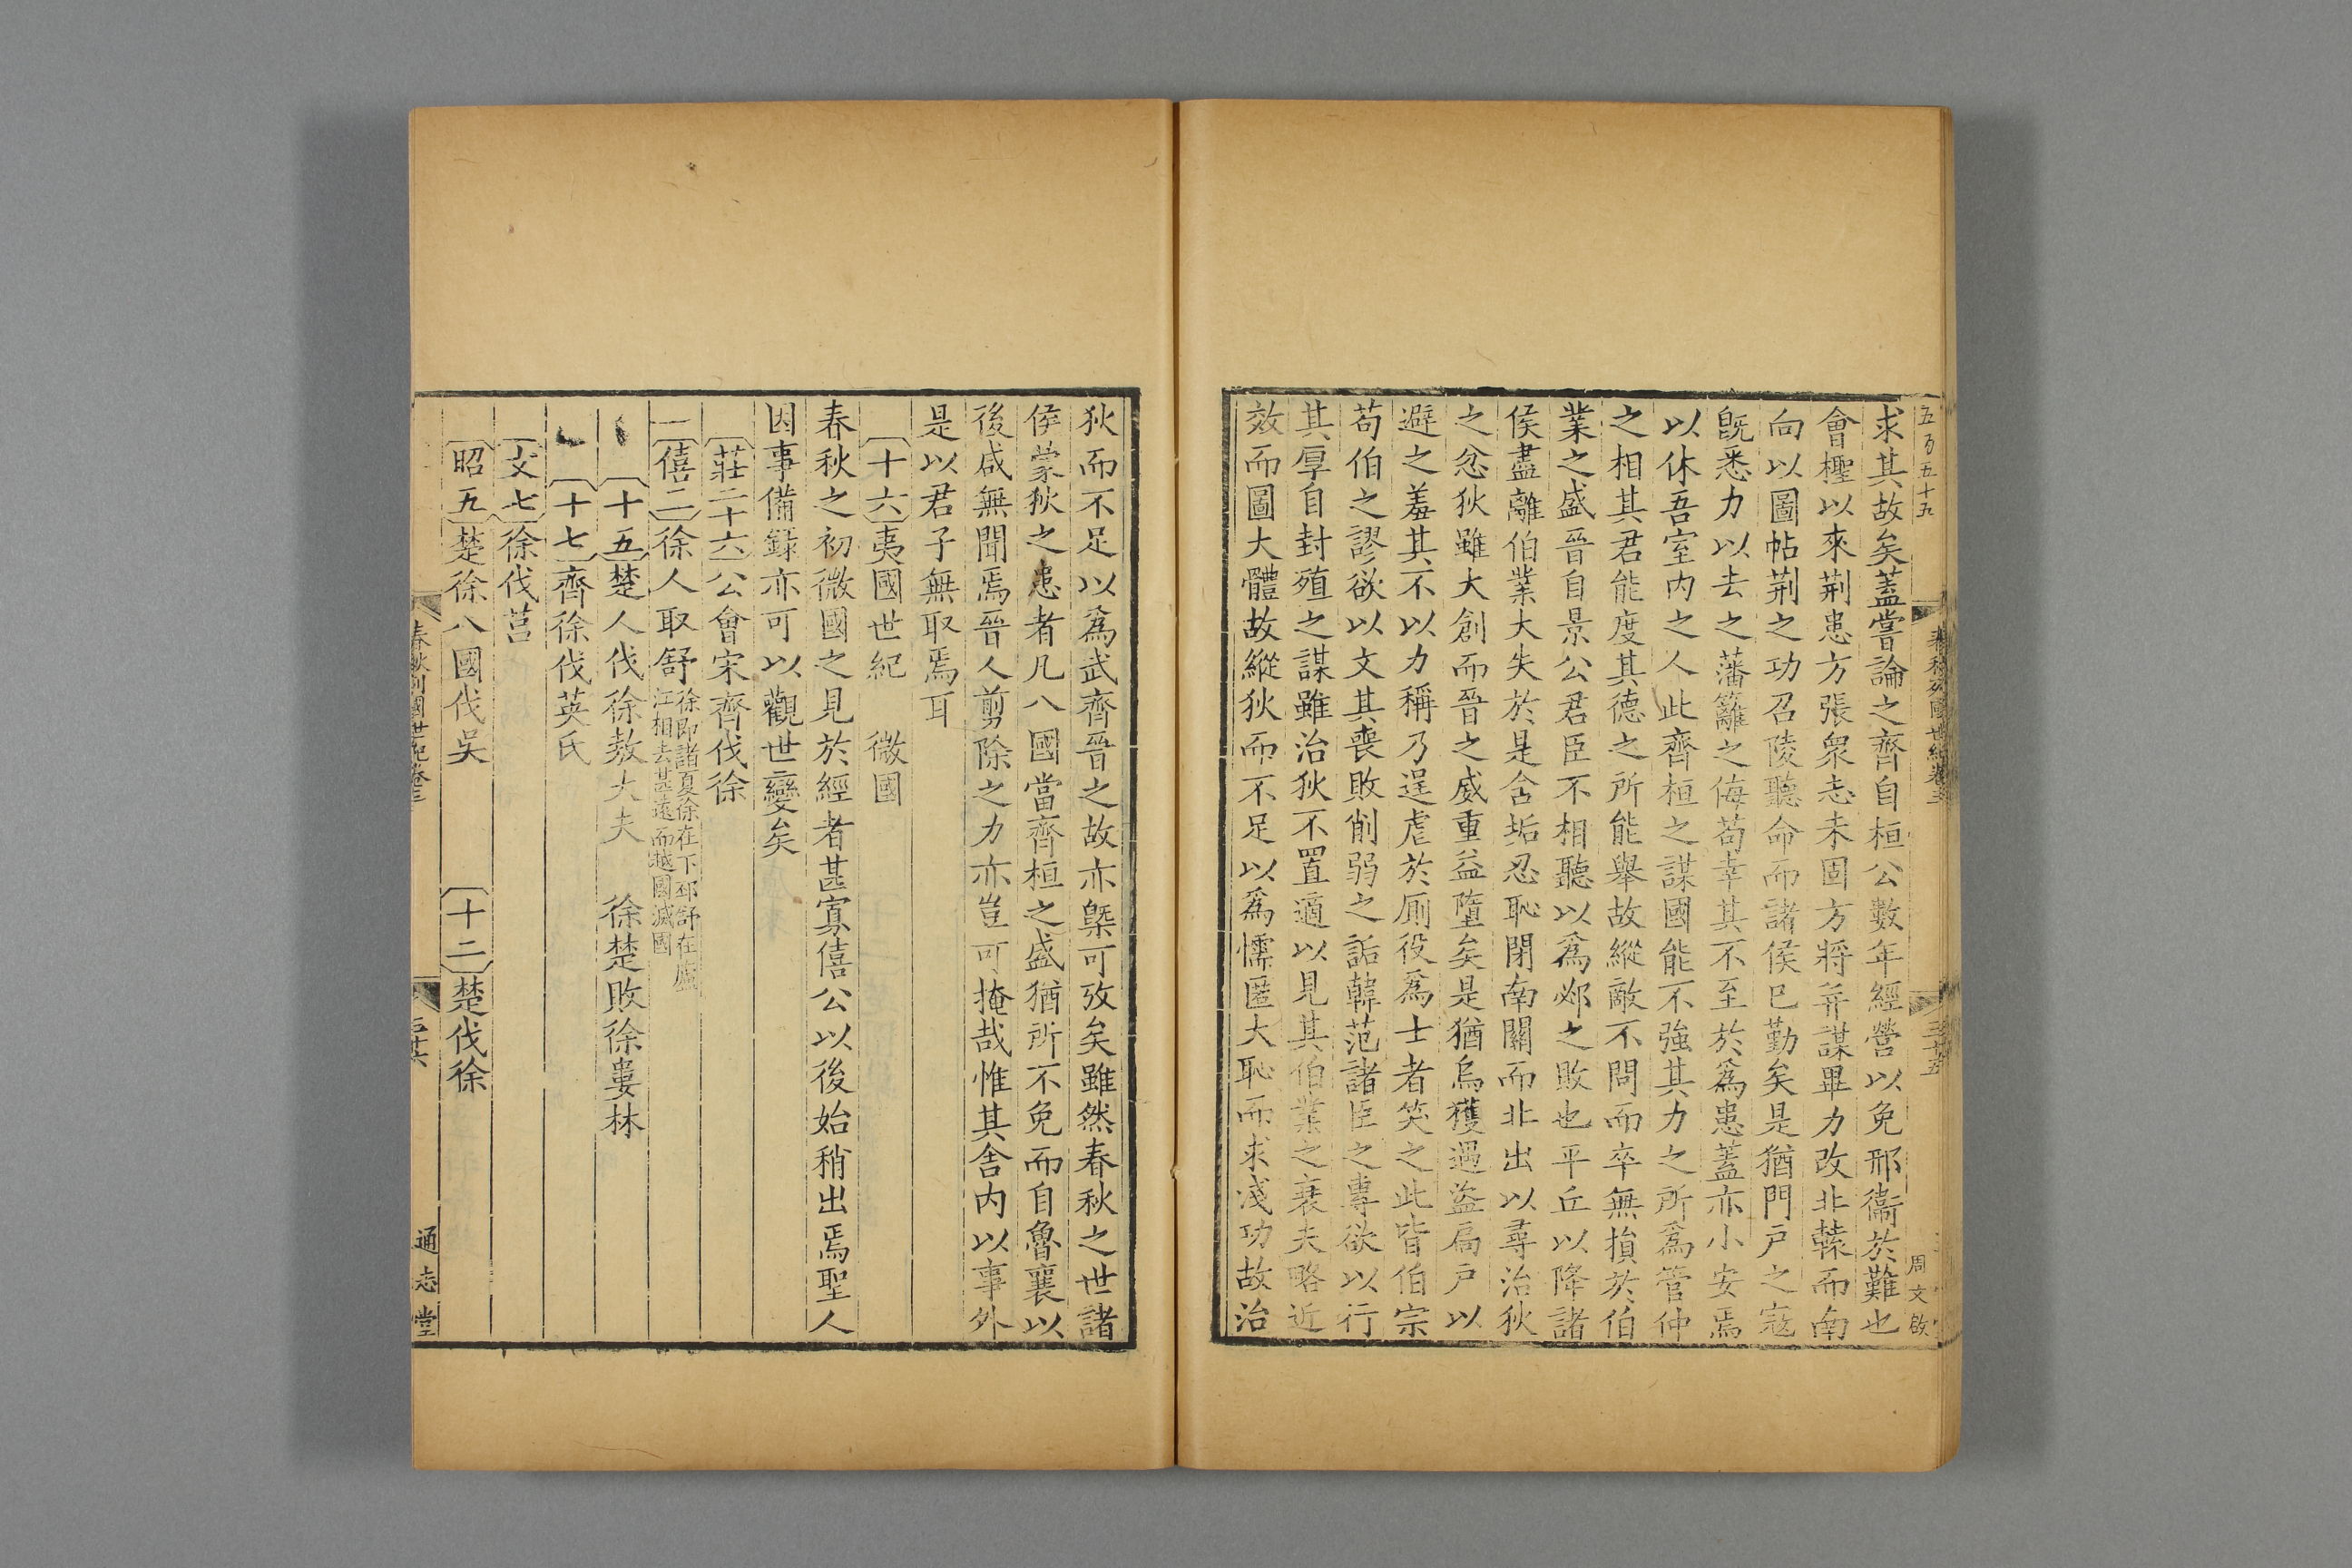 五百五十九
周文啟
求其故矣蓋嘗論之齊自桓公數年經營以免邢衞於難也
會檉以來荆患方張衆志未固方將并謀畢力改北轅而南
向以圖帖荆之功召陵聽命而諸侯已勤矣是猶門戶之寇
旣悉力以去之藩籬之侮苟幸其不至於爲患蓋亦小安焉
以休吾室内之人此齊桓之謀國能不強其力之所爲管仲
之相其君能度其德之所能舉故縱敵不問而卒無損於伯
業之盛晉自景公君臣不相聽以爲邲之敗也平丘以降諸
侯盡離伯業大失於是含垢忍恥閉南關而北出以尋治狄
之忿狄雖大創而晉之威重益墮矣是猶烏獲遇盜扃戶以
避之羞其不以力稱乃逞虐於厠役爲士者笑之此皆伯宗
荀伯之謬欲以文其喪敗削弱之詬韓范諸臣之專欲以行
其厚自封殖之謀雖治狄不置適以見其伯業之衰夫略近
效而圖大體故縱狄而不足以爲懦匿大恥而求淺功故治
狄而不足以爲武齊晉之故亦槩可攷矣雖然春秋之世諸
侯蒙狄之患者凡八國當齊桓之盛猶所不免而自魯襄以
後咸無聞焉晉人剪除之力亦豈可掩哉惟其舍内以事外
是以君子無取焉耳
十六夷國世紀 微國
春秋之初微國之見於經者甚寡僖公以後始稍出焉聖人
因事備錄亦可以觀世變矣
莊二十六公會宋齊伐徐
僖三徐人取舒徐即諸夏徐在下邳舒在廬江相去甚遠而越國滅國
十五楚人伐徐敖大夫 徐楚敗徐婁林
十七齊徐伐英氏
文七徐伐莒
昭五楚徐八國伐吳 十二楚伐徐
春秋列國世紀卷三
通志堂